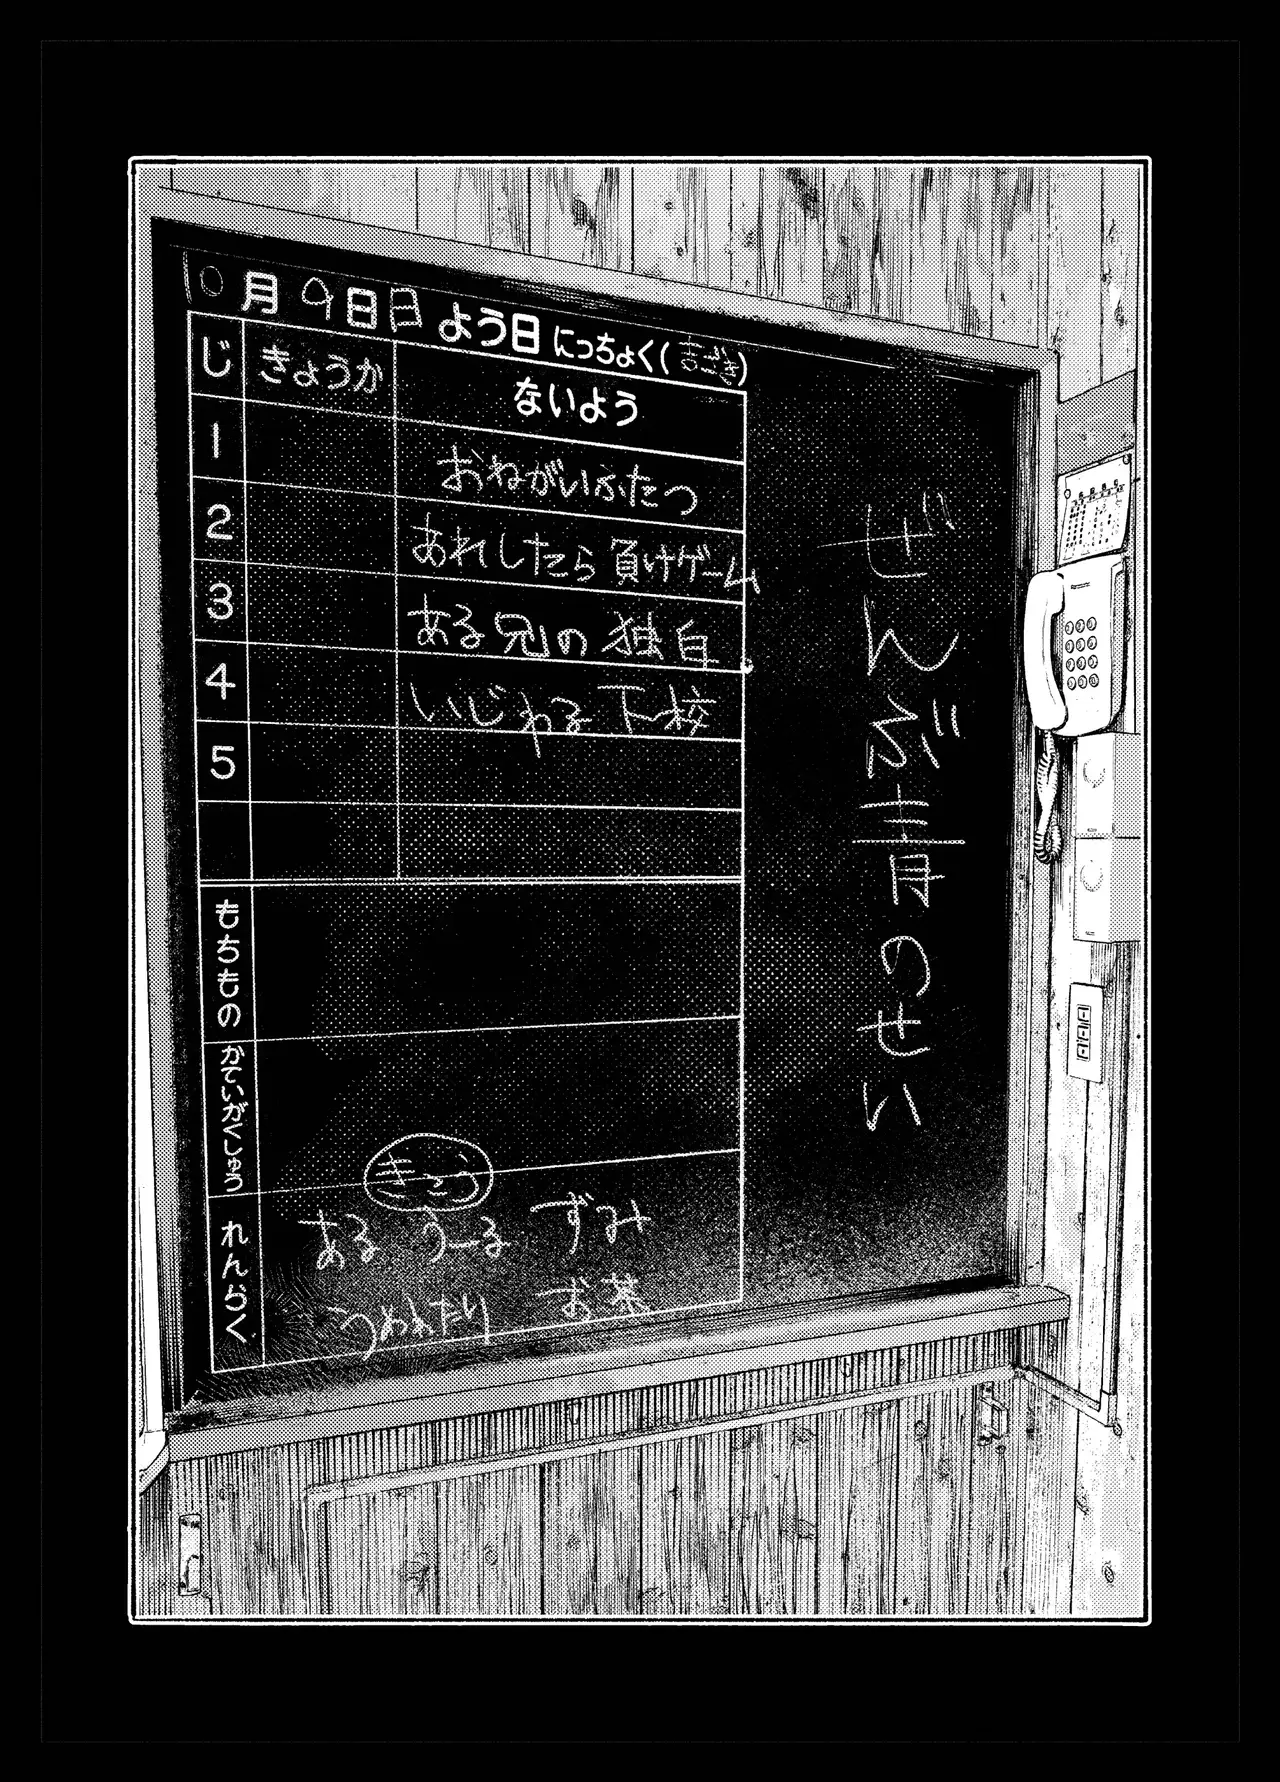 10月9日日よう日 にっちょく(吉づき)
じ きょうか ないよう
1 おねがいふたつ
2 あれしたら負けゲーム
3 ある兄の独白
4 いじわる下校
5
もちもの
かていがくしゅう
れんらく
きょう
ある うーる ずみ
うめれたり お茶
ぜんぶ青のせい